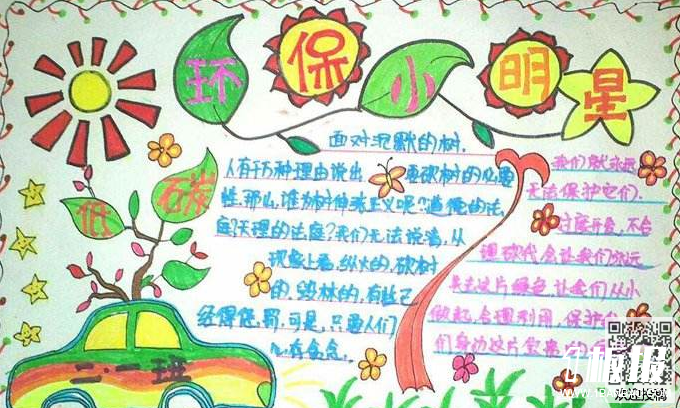 环保小明星
低碳
二·二班
面对沉默的树,
人有千万种理由说出 要砍树的必要
性,那么,谁为树伸张正义呢?道德的法
庭?天理的法庭?我们无法说清,从
现象上看,纵火的,砍树
的,毁林的,有些已
经得惩罚,可是,只要人们
心存贪念,
我们就永远
无法保护它们.
过度开会,不合
理 会让我们永远
失去这片绿色,让我们从小
做起,合理利用,保护
们身边这片